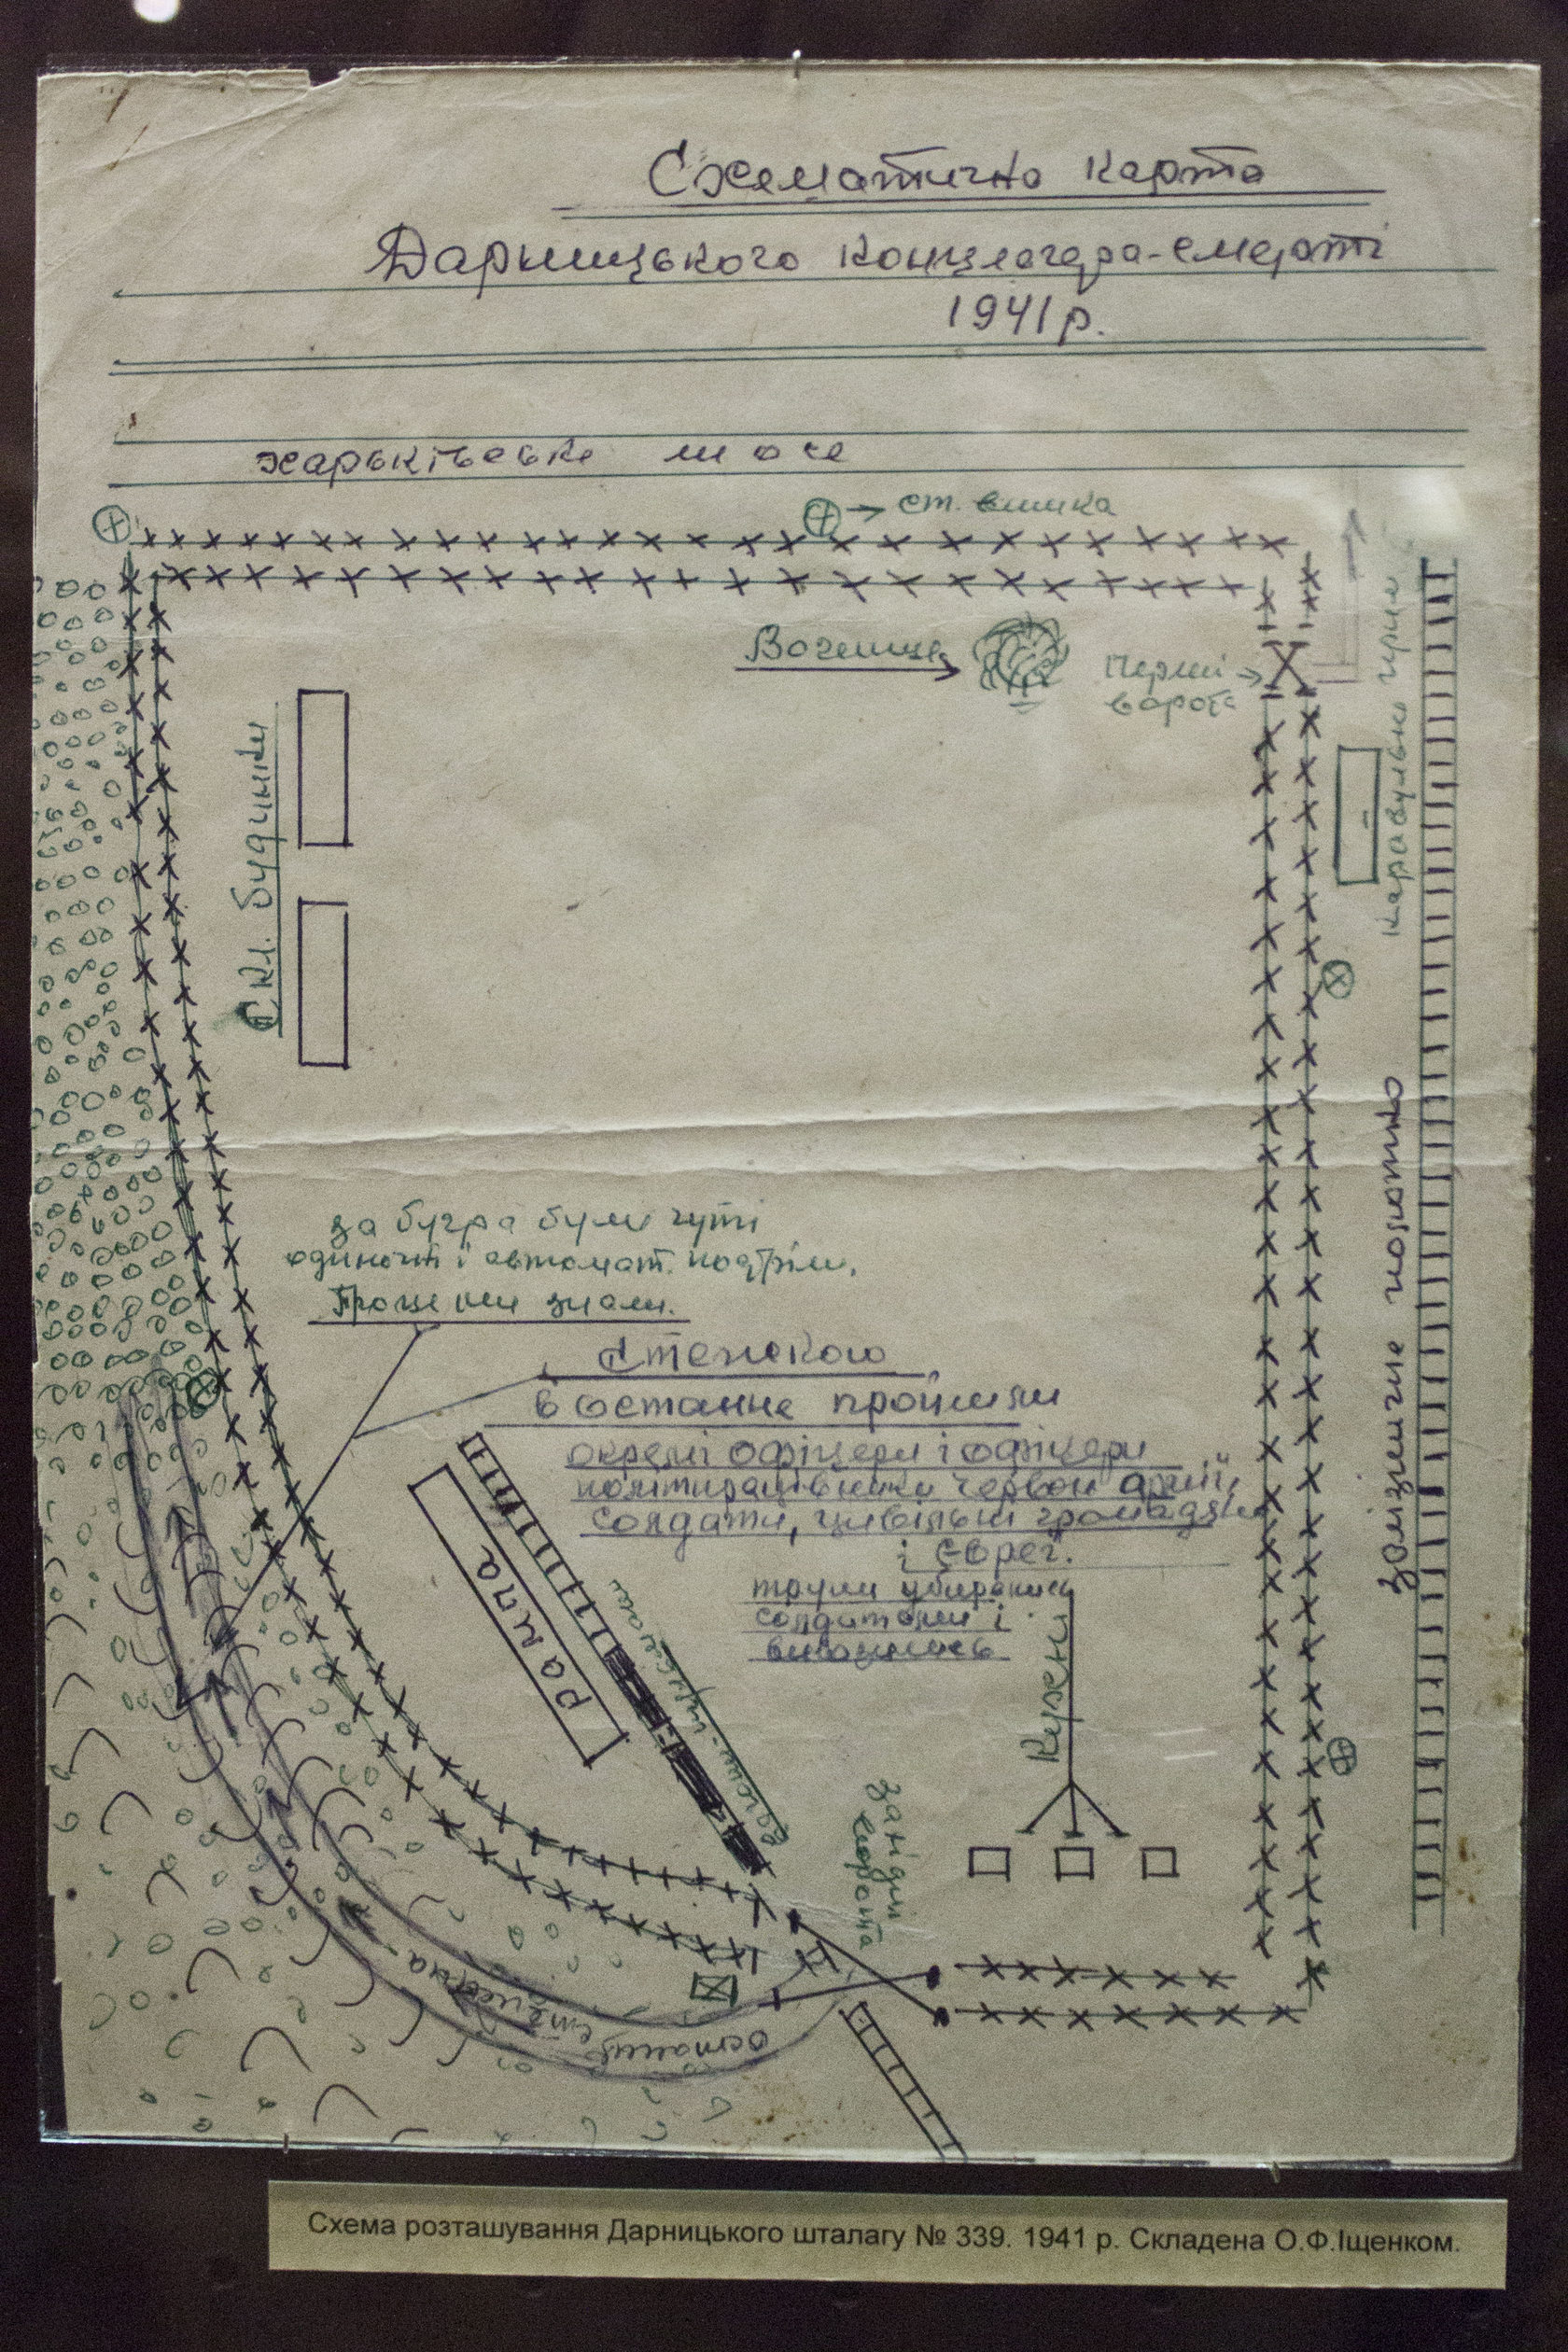 Схематична карта
Дарницького концлагера-смерті
1941 р.
харьківське шосе
ст. вишка
Вогнище
ворота
Скл. будинки
залізничне полотно
за бугра були чуті
одиночні і автомат. постріли.
Про це ми знали.
Стежкою
востаннє пройшли
окремі офіцери і офіцери
політпрацівники червон армії,
солдати, цивільні громадяни
і євреї.
трупи убирались
солдатами і
вивозились
рампа
Кухені
західні
ворота
остання стежина
Схема розташування Дарницького шталагу № 339. 1941 р. Складена О.Ф.Іщенком.